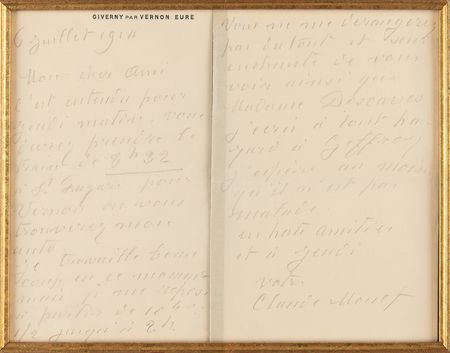 GIVERNY PAR VERNON. EURE
6 juillet 1914
Mon cher ami
C'est entendu pour
jeudi matin. Vous
devrez prendre le
train de 8h 32
à St Lazare pour
Vernon où vous
trouverez mon
auto.
Je travaille beau
coup en ce moment
mais je me repose
à partir de 10h
1/2 jusqu'à 2h.
Vous ne me dérangerez
pas du tout et suis
enchanté de vous
voir ainsi que
Madame Descaves
J'écris à tout ha-
sard à Geffroy
j'espère au moins
qu'il n'est pas
malade.
amitiés
et à jeudi
votre
Claude Monet